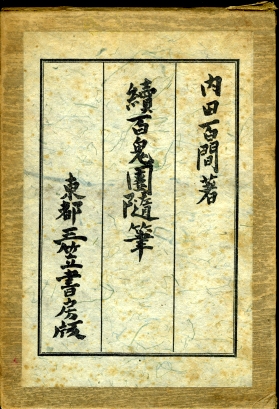 内田百間著
續百鬼園隨筆
東都 三笠書房版